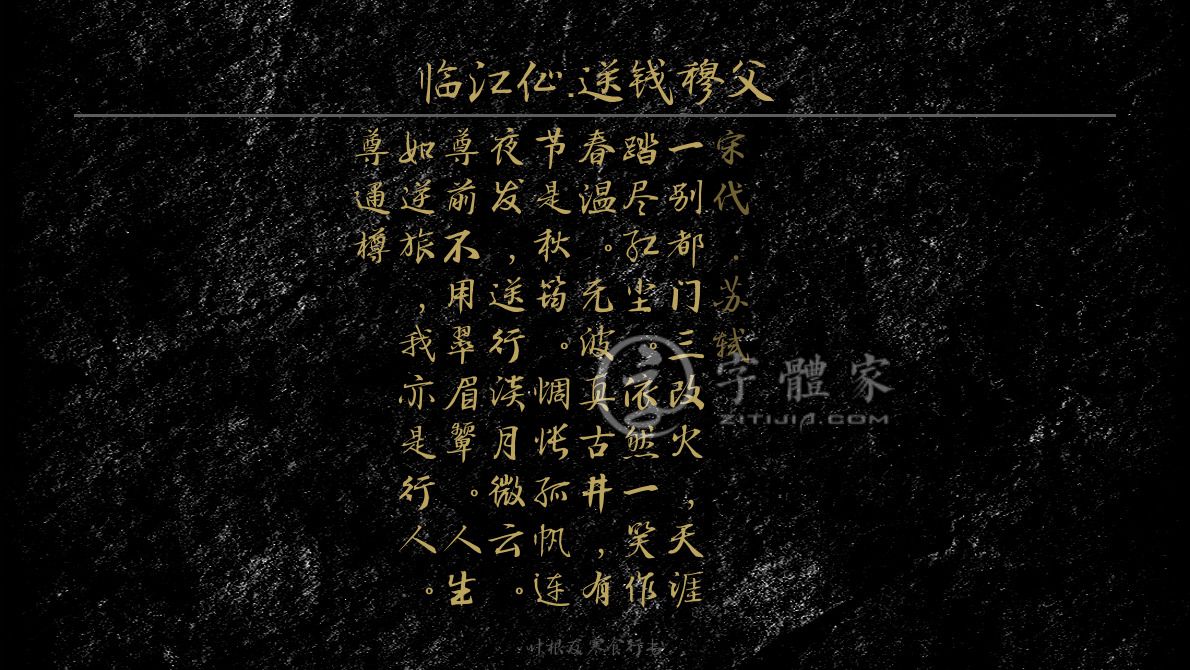 临江仙.送钱穆父
宋代.苏轼
一别都门三改火，天涯
踏尽红尘。依然一笑作
春温。无波真古井，有
节是秋筠。惆怅孤帆连
夜发，送行淡月微云。
尊前不用翠眉颦。人生
如逆旅，我亦是行人。
尊通樽
字體家
ZITIJIA.COM
叶根友寒食行书